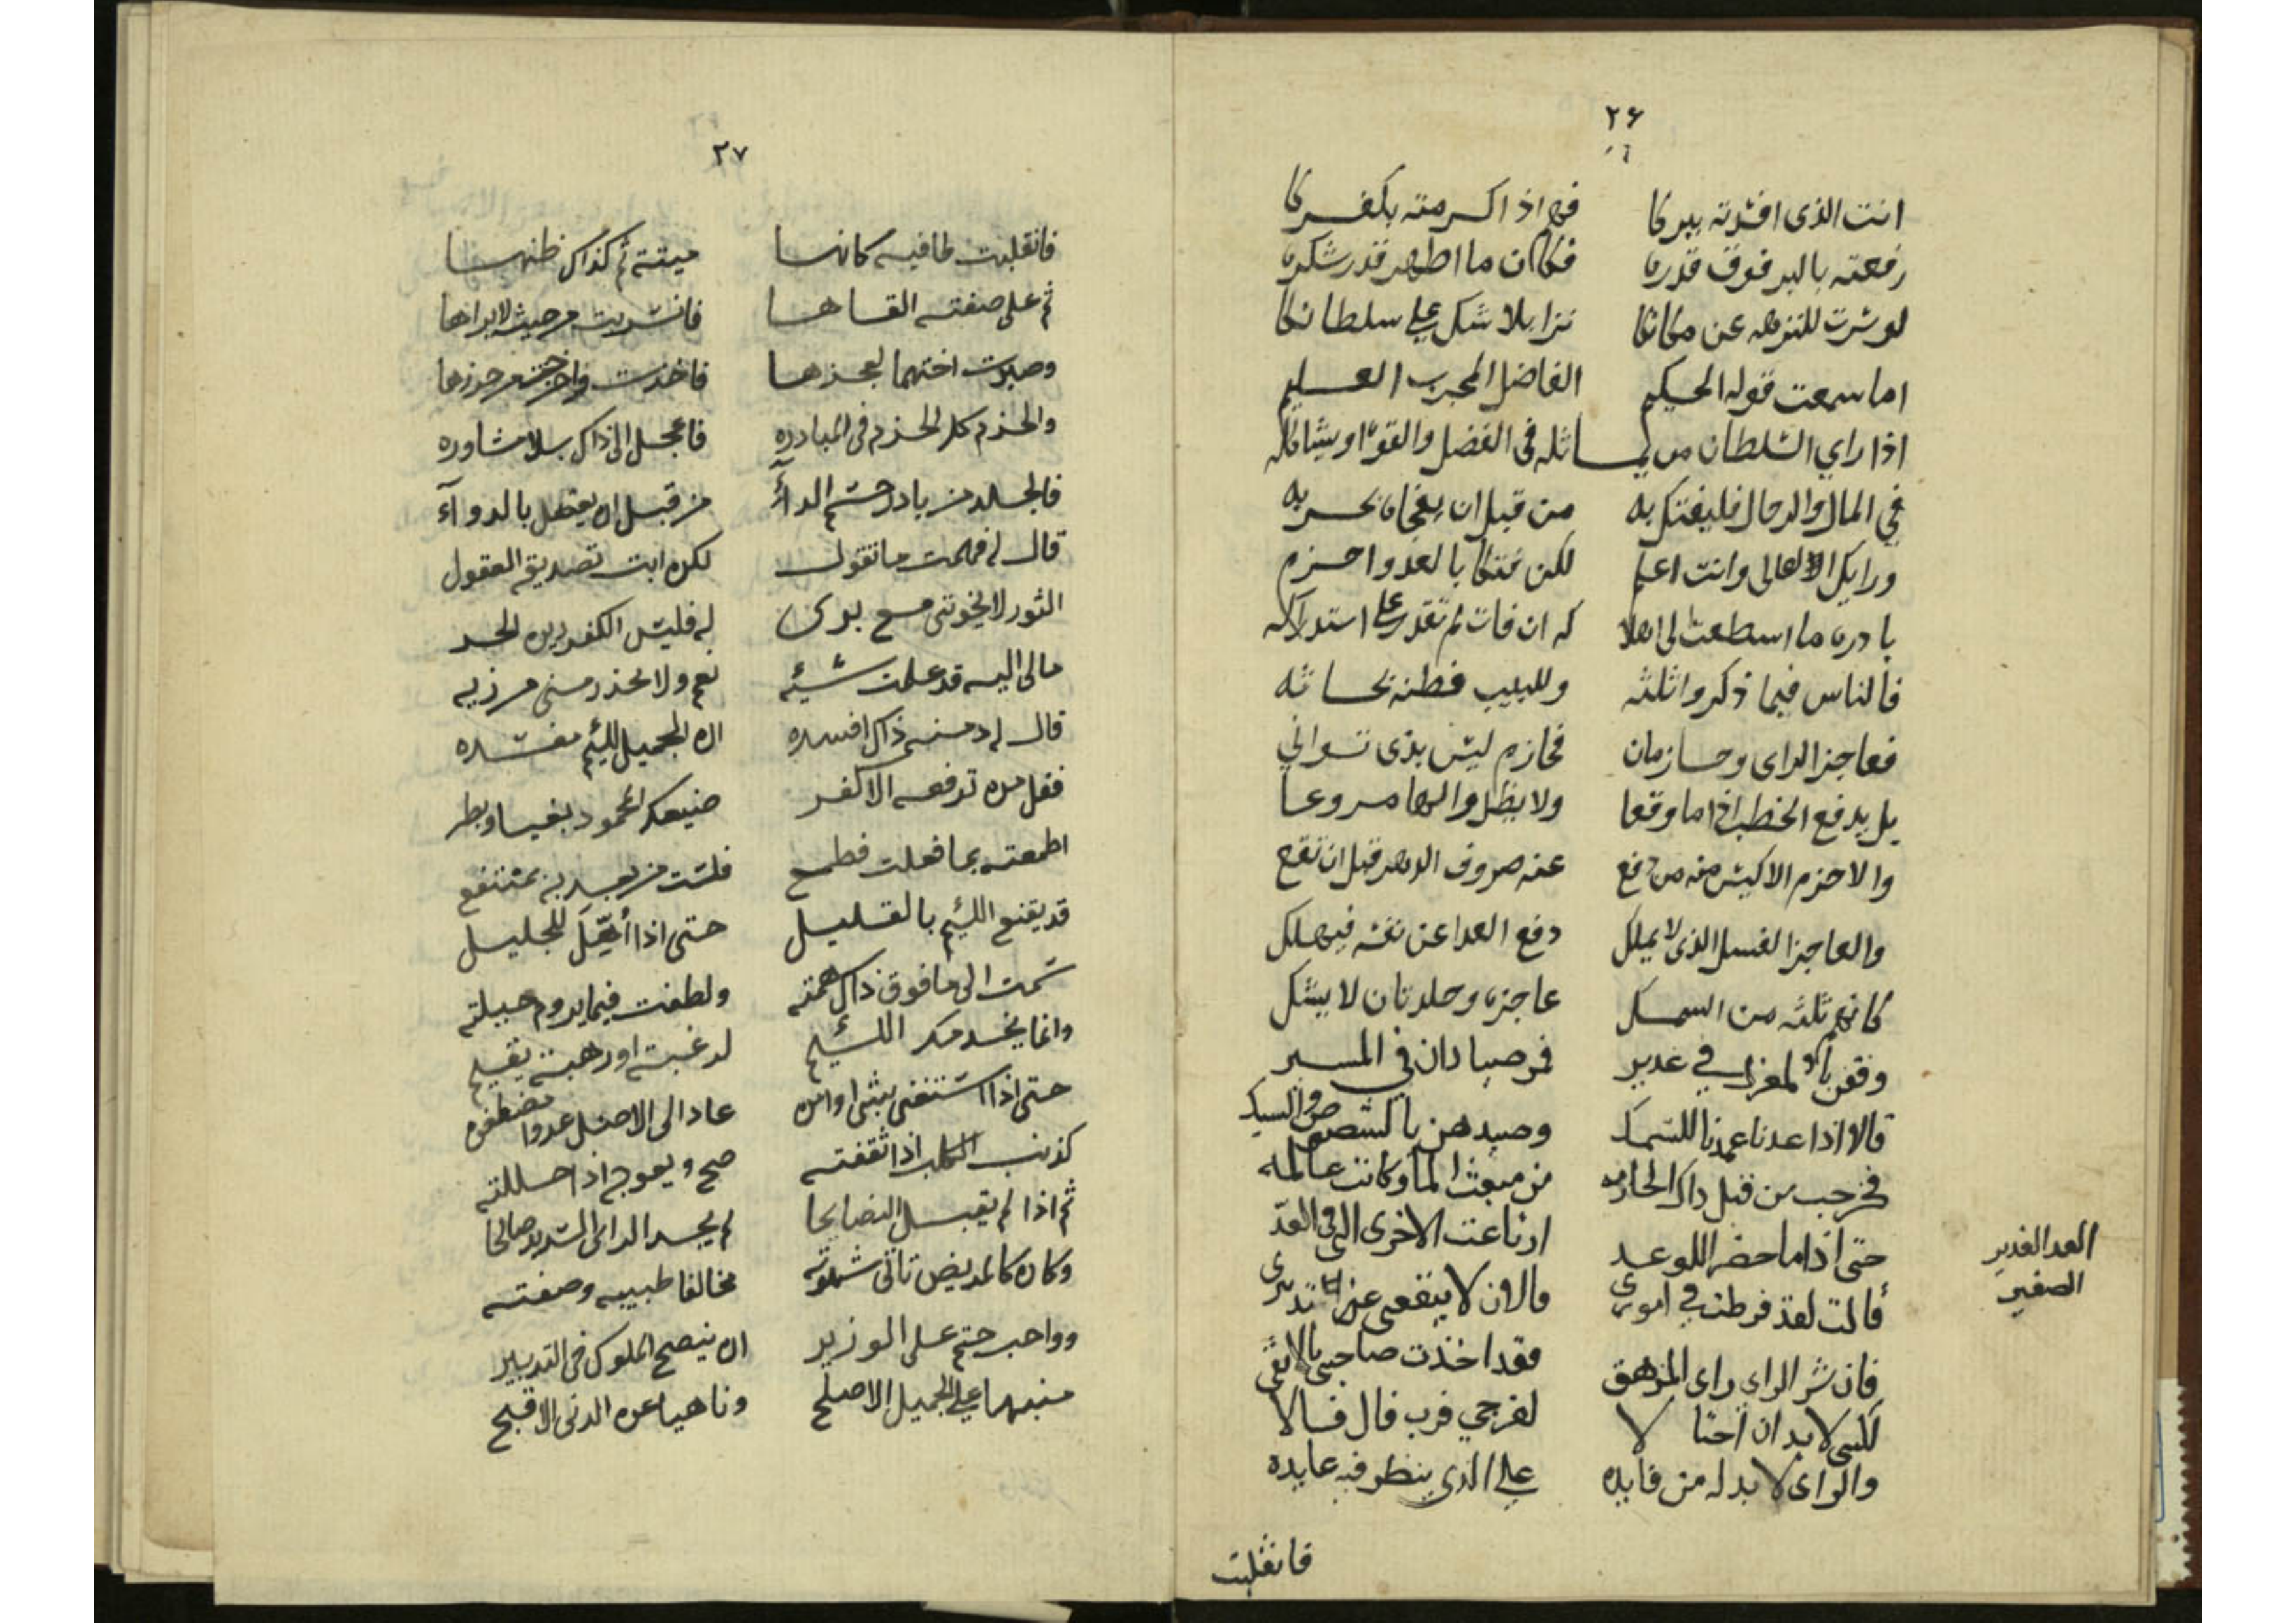 ٢۶
انت الذى افسدته ببركا فهو اذ اكرمته بكفركا
رفعته بالبر فوق قدره فكان ما اظهر قدر شكره
لو سرت للنزهه عن مكانكا نزا بلا شك على سلطانكا
اما سمعت قوله الحكيم الفاضل المجرب العليم
اذا راي السلطان من يماثله فى الفضل والقوة او يشاكله
في المال والرجال فليفتك به من قبل ان يفجاه بحربه
ورايك الاعالى وانت اعلم لكن فتكا بالعدو احزم
بادره ما اسطعت الى اهلاكه ان فات لم تقدر على استدراكه
فالناس فيما ذكروا ثلثه وللبيب فطنه بحاثه
فعاجز الراى وحازمان فحازم ليس بذى توانى
بل يدفع الخطب اذا ما وقعا ولا يظل والها مروعا
والاحزم الاكيس منه من دفع عنه صروف الدهر قبل ان تقع
والعاجز الفسل الذى لا يملك دفع العدا عن نفسه فيهلك
كانهم ثلثه من السمك عاجزه وجلدتان لا بشك
وقفن في غدير فمر صيادان في المسير
قالا اذا عدنا عمدنا للسمك وصيدهن بالشصوص والشبك
فخرجت من قبل ذاك الحازمه من مبعث الما وكانت عالمه
حتى اذا ما حضرا للوعد ارتاعت الاخرى التى فى العد
العد الغدير
الصغير
قالت لقد فرطت في امورى والان لا ينفعى
فان شر الراي راى المزهق فقد اخذت صاحبى
لكنى لا بد ان احتالا لفرجي فرب فال فالا
والراى لا بد له من فايده على الذى ينظر فيه عايده
فانقلبت
٢٧
فانقلبت طافيه كانها ميتة ثم كذاك ظنها
ثم على ضفته القاها فانسربت من حيث لا يراها
وصبرت اختهما لعجزها فاخذت واخرجت من حرزها
والحزم كل الحزم فى المبادره فاعجل الى ذاك بلا مشاوره
فالجلد من بادر حسم الداء من قبل ان يعضل بالدواء
قال له فهمت ما تقول لكن ابت تصديقه العقول
الثور لا يخوننى مع برى به فليس الكفر دين الحر
مالى اليه قد علمت سيئه نعم ولا يحذر منى مرزيه
قال له دمنه ذاك افسده ان الجميل للئيم مفسده
فقل من ترفعه الا كفر صنيعك المحمود بغيا وبطر
اطمعته بما فعلت فطمع فلست من بعد به بمنتفع
قد يقنع اللئيم بالقليل حتى اذا أهّل للجليل
سمت الى ما فوق ذاك همته ولطفت فيما يروم حيلته
وانما يخدمك اللئيم لرغبة او رهبة يقيم
حتى اذا استغنى بشئ او امن عاد الى الاصل عدوا مضطغن
كذنب الكلب اذا ثقفته صح ويعوج اذا حللته
ثم اذا لم يقبل النصايحا لم يجد الراى السديد صالحا
وكان كالمريض تاتى شهوته مخالفا طبيبه وصفته
وواجب حتم على الوزير ان ينصح الملوك فى التدبير
منبها على الجميل الاصلح وناهيا عن الدنى الاقبح